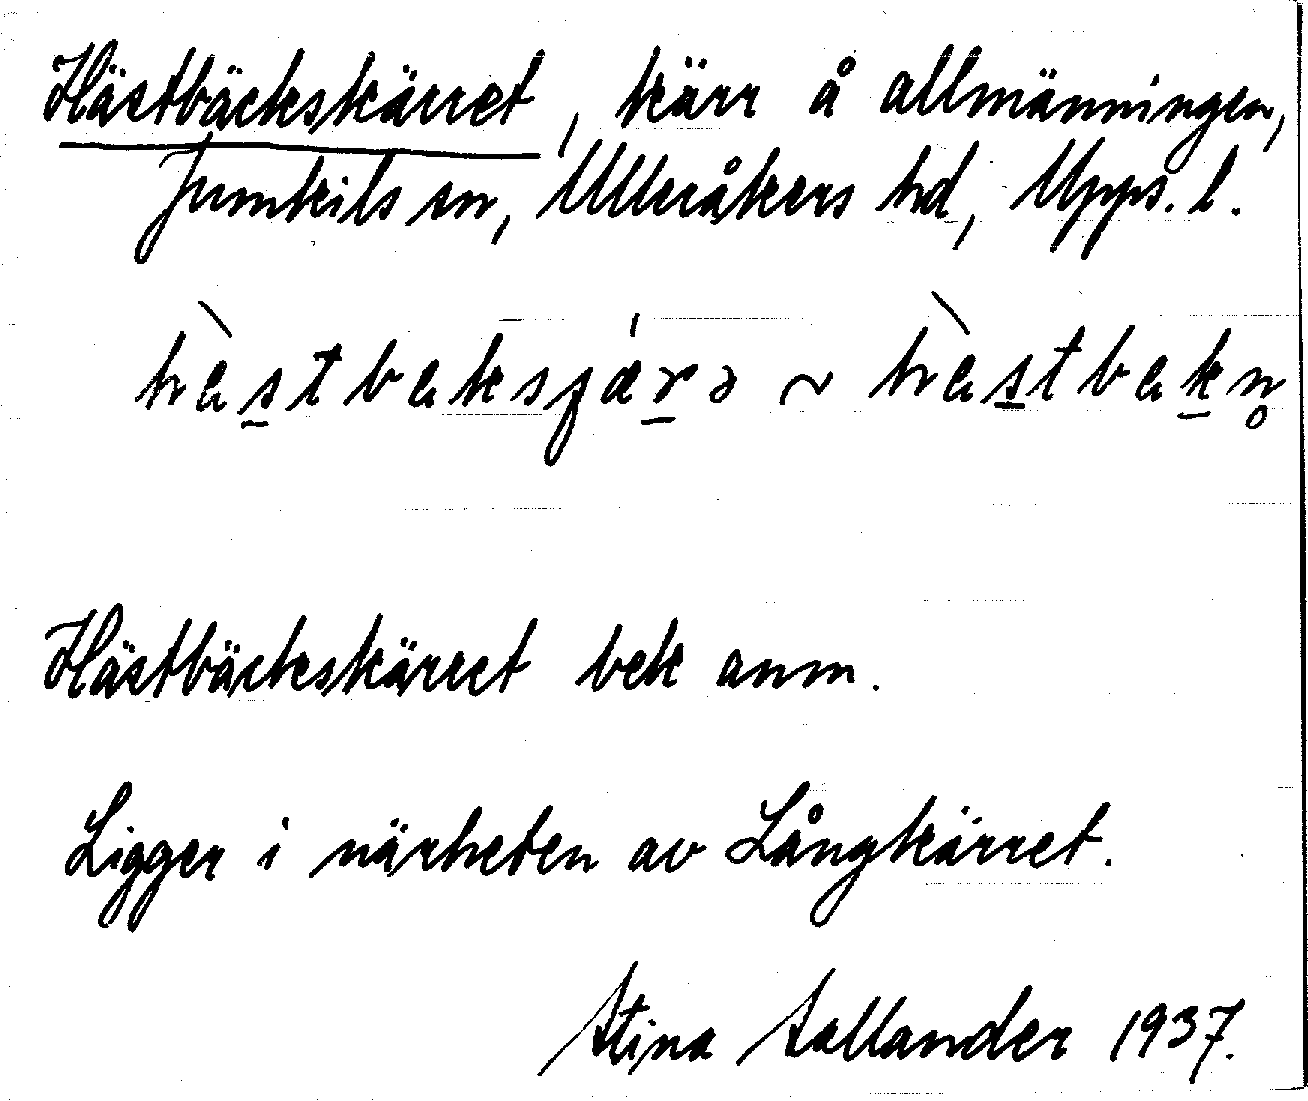 Hästbäckskärret, kärr å allmänningen,
Jumkils sn, Ulleråkers hd, Upps. l.
hὲstbεksʃærə ~ hὲstbεkn̥
Hästbäckskärret bek anm.
Ligger i närheten av Långkärret.
Stina Sallander 1937.